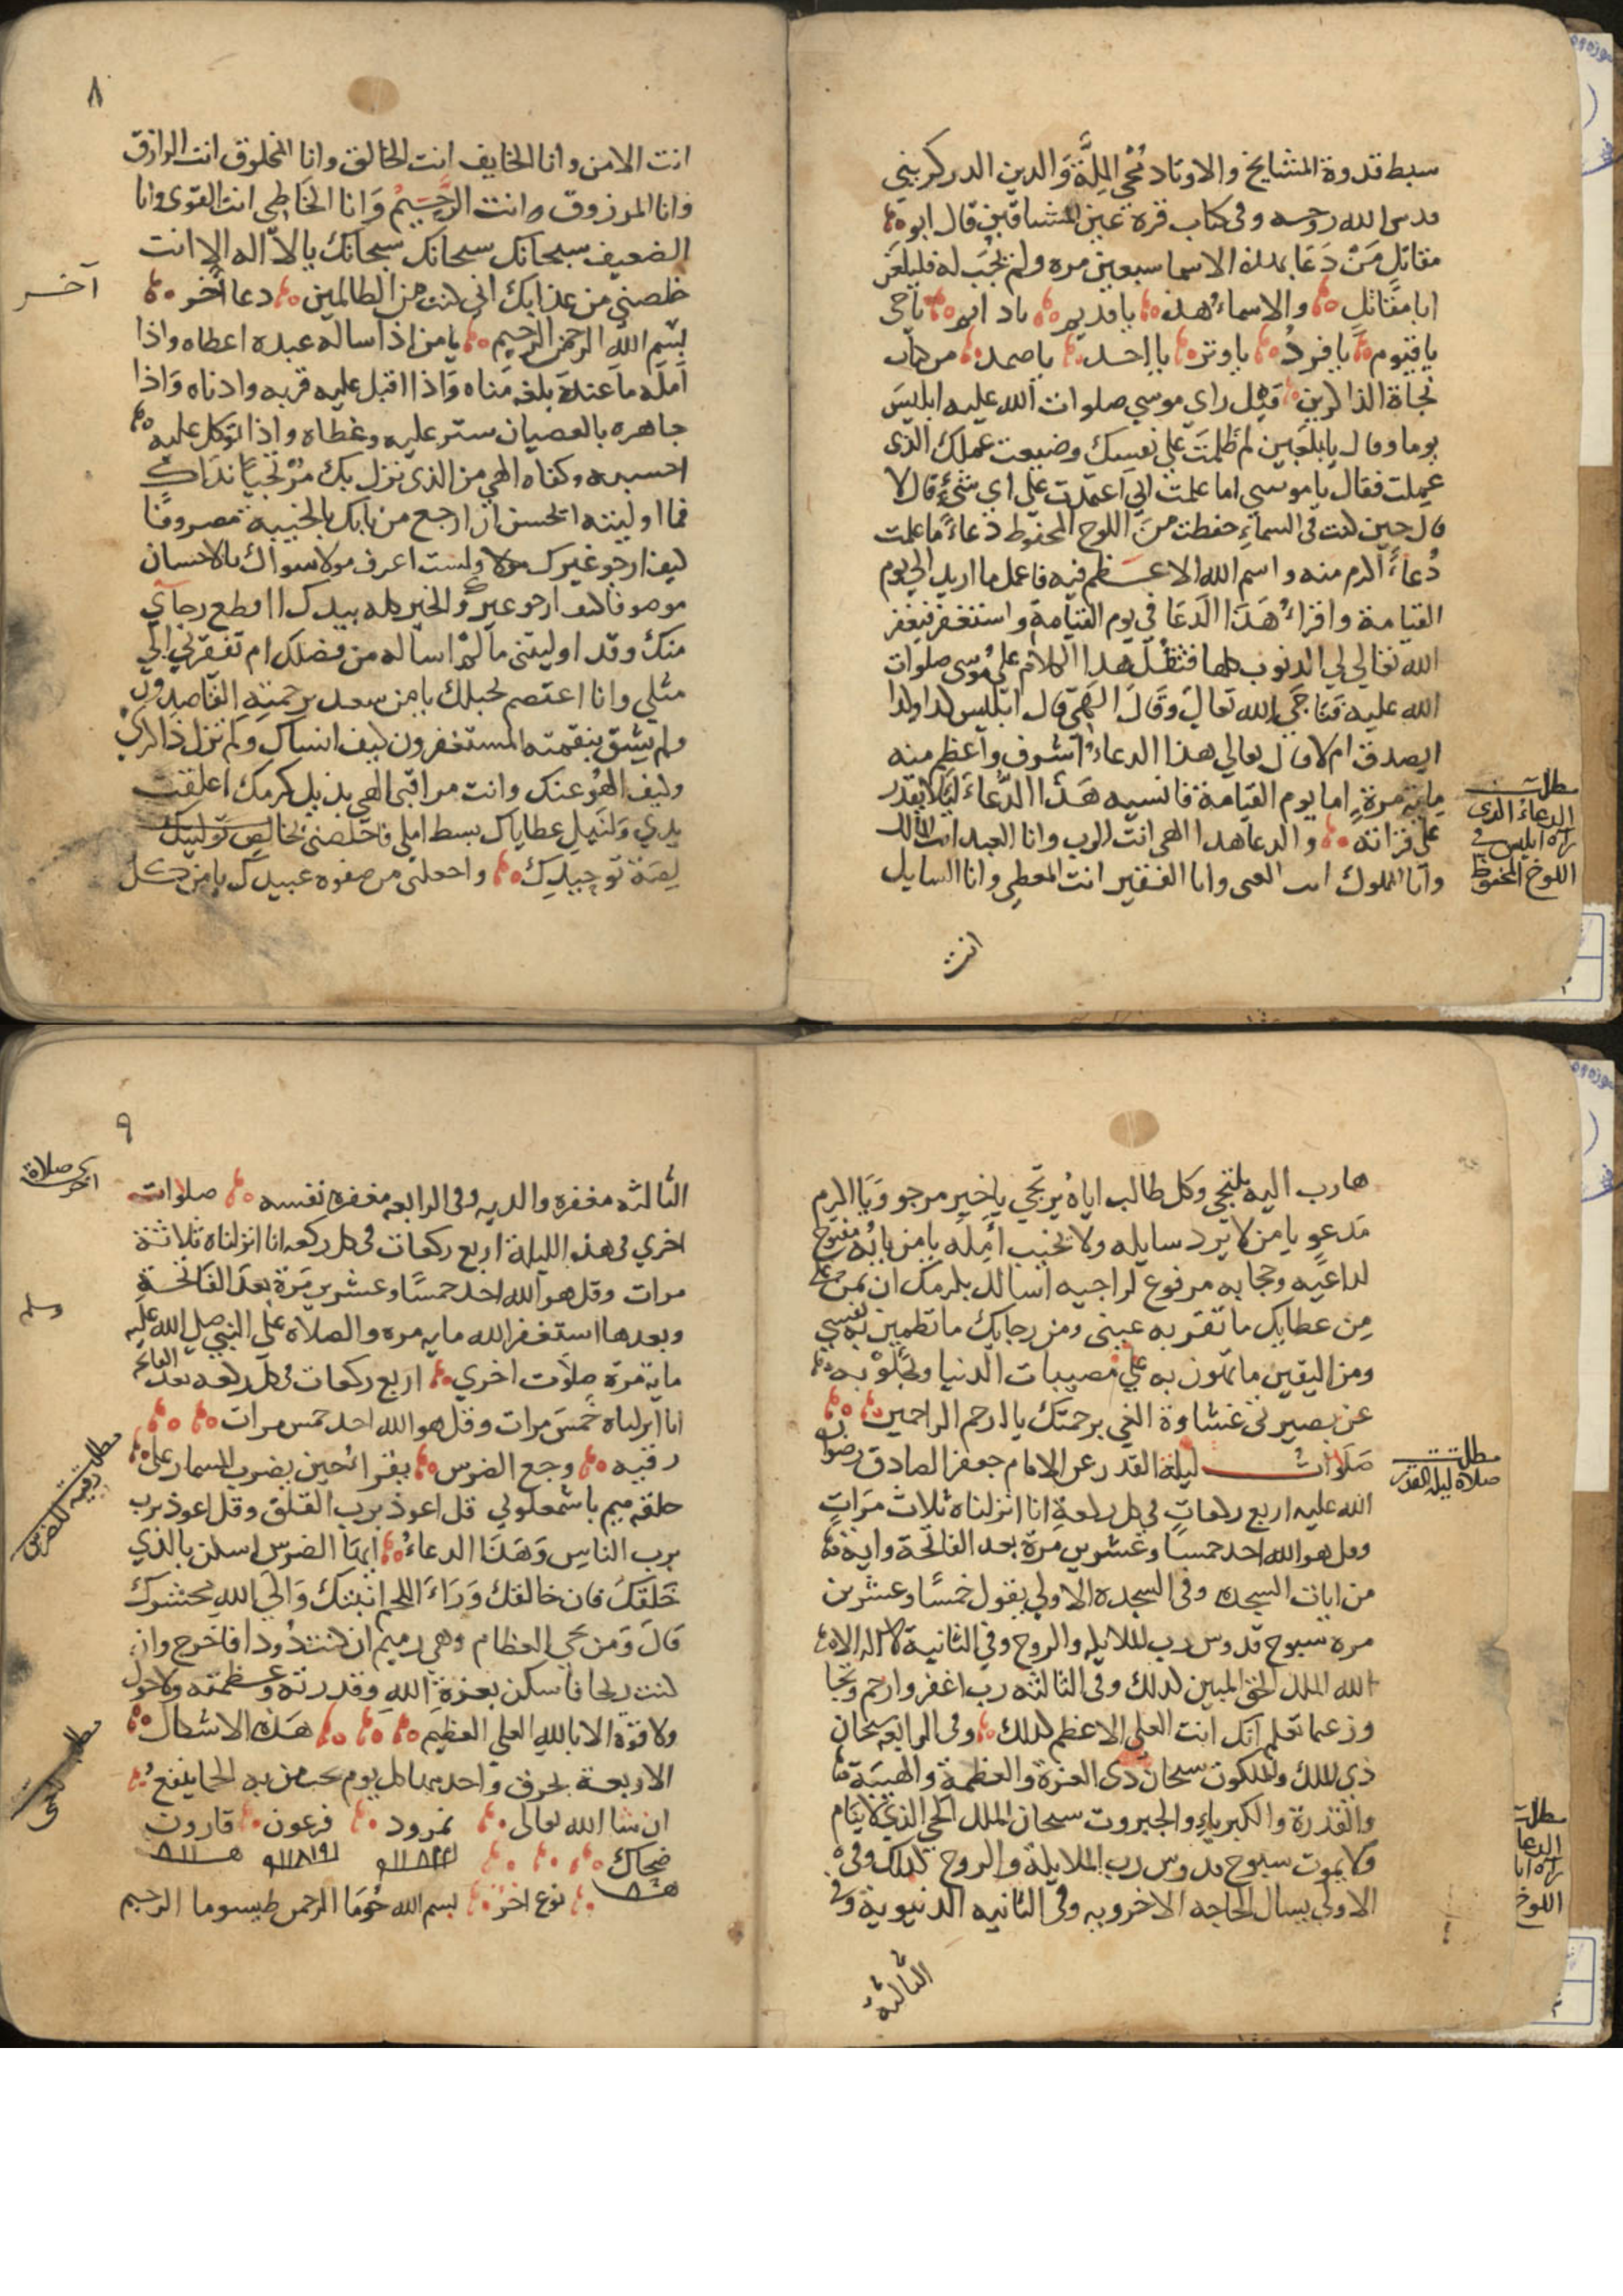 سبط قدوة المشايخ والاوتاد محي الملة والدين الدركزيني
قدس الله روحه وفى كتاب قرة عين المشتاقين قال ابو
مقاتل من دعا بهذه الاسما سبعين مرة ولم يجب له فليلعن
ابا مقاتل والاسماء هذه يا قديم يا دايم يا حي
يا قيوم يا فرد يا وتر يا احد يا صمد من كتاب
نجاة الذاكرين قيل راي موسي صلوات الله عليه ابليس
يوما وقال يا لعين لم ظلمت علي نفسك وضيعت عملك الذى
عملت فقال يا موسي اما علمت اني اعتمدت علي اي شئ قال لا
قال حين كنت في السماء حفظت من اللوح المحفوظ دعاء ما علمت
دعاء اكرم منه واسم الله الاعظم فيه فاعمل ما اريد الي يوم
القيامة واقراء هذا الدعا في يوم القيامة واستغفر فيغفر
الله تعالي لي الذنوب كلها فثقل هذا الكلام علي موسي صلوات
الله عليه فناجي الله تعالي وقال الهي قال ابليس كذا وكذا
ايصدق ام لا قال تعالي هذا الدعاء اشرف واعظم منه
ماية مرة اما يوم القيامة فانسيه هذا الدعاء ليلا يقدر
علي قراته والدعا هذا الهي انت الرب وانا العبد انت المالك
وانا المملوك انت الغنى وانا الفقير انت المعطي وانا السايل
مطلب
الدعاء الذى
قراه ابليس في
اللوح المحفوظ
انت
٨
انت الامن وانا الخايف انت الخالق وانا المخلوق انت الرازق
وانا المرزوق وانت الرحيم وانا الخاطي انت القوى وانا
الضعيف سبحانك سبحانك سبحانك يا لا اله الا انت
خلصني من عذابك اني كنت من الظالمين دعا اخر
آخر
بسم الله الرحمن الرحيم يا من اذا ساله عبده اعطاه واذا
امله ما عنده بلغه مناه واذا اقبل عليه قربه وادناه واذا
جاهره بالعصيان ستر عليه وغطاه واذا توكل عليه
احسبه وكفاه الهي من الذى نزل بك مرتجيا نداك
فما اوليته ايحسن ان ارجع من بابك بالخيبة مصروفا
كيف ارجو غيرك ولست اعرف مولا سواك بالاحسان
موصوفا كيف ارجو غيرك والخير كله بيدك ااقطع رجآي
منك وقد اوليتني ما لم اساله من فضلك ام تفقرني الي
مثلي وانا اعتصم بحبلك يا من سعد برحمته القاصدون
ولم يشق بنقمته المستغفرون كيف انساك ولم تزل ذاكري
وكيف الهو عنك وانت مراقبي الهي بذيل كرمك اعلقت
يدي ولنيل عطاياك بسط املي فاخلصني بخالص توليتك
توحيدك واجعلني من صفوة عبيدك يا من كل
هارب اليه يلتجي وكل طالب اياه يرتجي يا خير مرجو ويا اكرم
مدعو يا من لا يرد سايله ولا يخيب امله يا من بابه مفتوح
لداعيه وحجابه مرفوع لراجيه اسالك بكرمك ان تمن علي
من عطايك ما تقر به عيني ومن رجايك ما تطمين به نفسي
ومن اليقين ما تهون به علي مصيبات الدنيا وتجلو به
عن بصيرتي غشاوة الغي برحمتك يا ارحم الراحمين
صلوات ليلة القدر عن الامام جعفر الصادق رضوان
الله عليه اربع ركعات في كل ركعة انا انزلناه ثلاث مرات
وقل هو الله احد خمسا وعشرين مرة بعد الفاتحة واية
من ايات السجده وفى السجدة الاولي يقول خمسا وعشرين
مره سبوح قدوس رب الملايكه والروح وفي الثانية لا اله الا
الله الملك الحق المبين كذلك وفى الثالثه رب اغفر وارحم وتجا
وز عما تعلم انك انت العلي الاعظم كذلك وفى الرابعه سبحان
ذي الملك والملكوت سبحان ذى العزة والعظمة والهيبة
والقدرة والكبرياء والجبروت سبحان الملك الحي الذي لا ينام
ولا يموت سبوح قدوس رب الملايكة والروح كذلك وفى
الاولي يسال الحاجه الاخرويه وفى الثانيه الدنيوية وفي
مطلب
صلاة ليلة القدر
مطلب
الدعا
قراه ابا
اللوح
الثالثة
٩
الثالثه مغفرة والديه وفى الرابعه مغفرة نفسه صلوات
اخري فى هذه الليلة اربع ركعات فى كل ركعه انا انزلناه ثلاثة
مرات وقل هو الله احد خمسا وعشرين مرة بعد الفاتحة
وبعدها استغفر الله مايه مره والصلاة علي النبي صلي الله عليه
وسلم
ماية مرة صلاوت اخري اربع ركعات فى كل ركعه بعد الفاتحه
انا انزلناه خمس مرات وقل هو الله احد خمس مرات
رقيه وجع الضرس يقرا حين يضرب المسمار علي
حلقة ميم يا شمعلوني قل اعوذ برب الفلق وقل اعوذ برب
برب الناس وهذا الدعاء ايها الضرس اسكن بالذي
خلقك فان خالقك وراء اللحم انبتك والي الله محشرك
قال ومن يحي العظام وهي رميم ان كنت دودا فاخرج وان
كنت ريحا فاسكن بعزة الله وقدرته وعظمته ولا حول
ولا قوة الا بالله العلي العظيم هذه الاشكال
الاربعة يحرق واحد منها كل يوم تحت من به الحما ينفع
ان شا الله تعالى نمرود فرعون قارون
ضحاك
نوع اخر بسم الله حوما الرحمن طيسوما الرحيم
اخرى صلاة
مطلب رقيه للضرس
مطلب للحمى